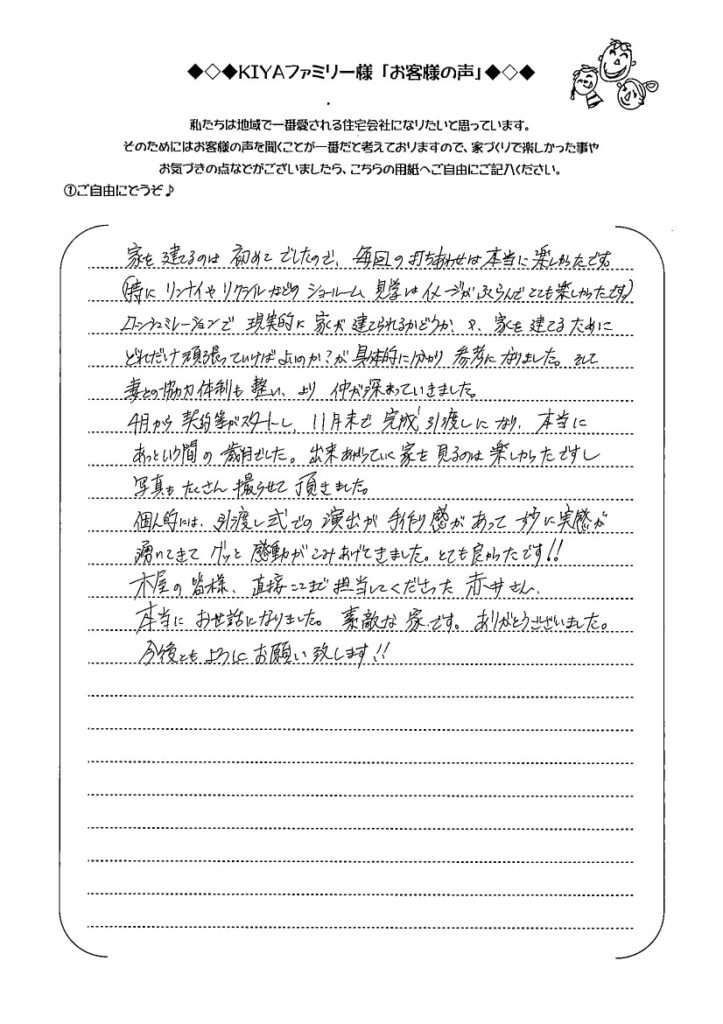 ◆◇◆KIYAファミリー様「お客様の声」◆◇◆
私たちは地域で一番愛される住宅会社になりたいと思っています。
そのためにはお客様の声を聞くことが一番だと考えておりますので、家づくりで楽しかった事や
お気づきの点などがございましたら、こちらの用紙へご自由にご記入ください。
①ご自由にどうぞ♪
家を建てるのは初めてでしたので、毎回の打ちあわせは本当に楽しかったです。
(特にリンナイやリクシルなどのショールーム見学はイメージがふくらんでとても楽しかったです)
ローンシュミレーションで現実的に家が建てられるかどうか?、家を建てるために
どれだけ頑張っていけばよいのか?が具体的に分かり参考になりました。そして
妻との協力体制も整い、より仲が深まっていきました。
4月から契約等がスタートし、11月末で完成!引渡しになり、本当に
あっという間の歳月でした。出来あがっていく家を見るのは楽しかったですし
写真もたくさん撮らせて頂きました。
個人的には、引渡し式での演出が手作り感があって妙に実感が
湧いてきてグッと感動がこみあげてきました。とても良かったです!!
木屋の皆様、直接ここまで担当してくださった赤井さん、
本当にお世話になりました。素敵な家です。ありがとうございました。
今後ともよろしくお願い致します!!